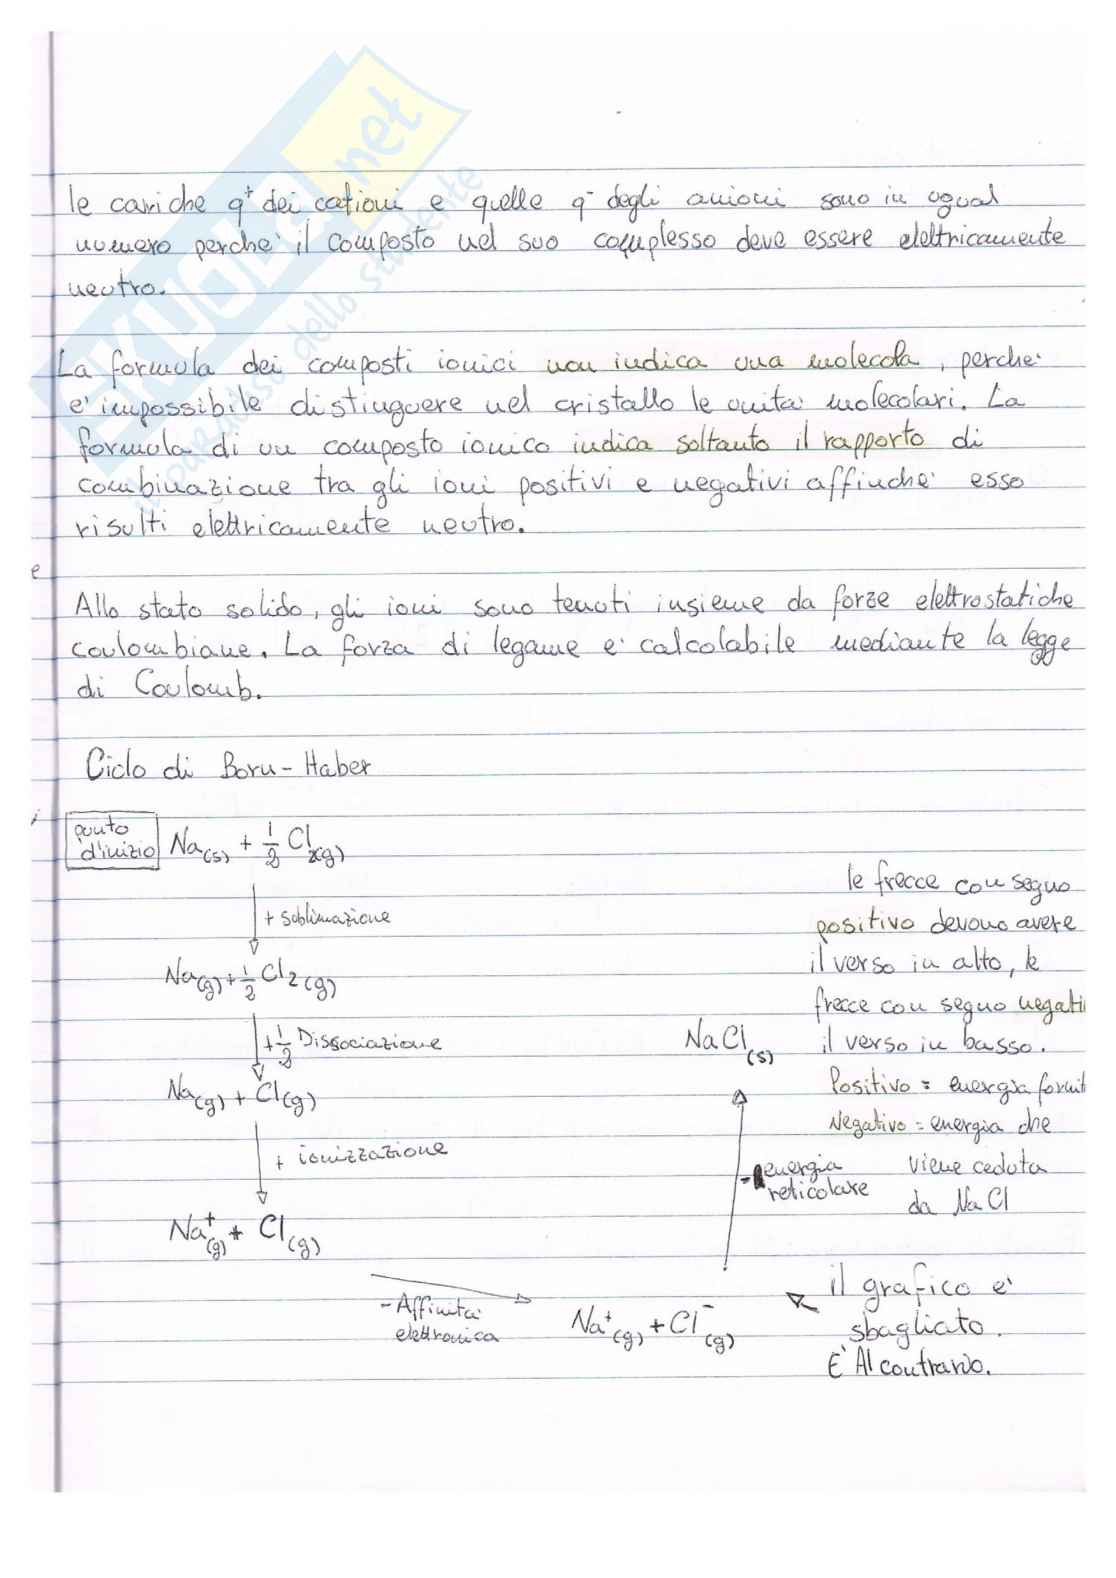 le cariche q+ dei cationi e quelle q- degli anioni sono in ugual
numero perche' il composto nel suo complesso deve essere elettricamente
neutro.
La formula dei composti ionici non indica una molecola, perche'
e' impossibile distinguere nel cristallo le unita' molecolari. La
formula di un composto ionico indica soltanto il rapporto di
combinazione tra gli ioni positivi e negativi affinche' esso
risulti elettricamente neutro.
e
Allo stato solido, gli ioni sono tenuti insieme da forze elettrostatiche
coulombiane. La forza di legame e' calcolabile mediante la legge
di Coulomb.
Ciclo di Born-Haber
i
punto
d'inizio
Na(s) + 1/2 Cl2(g)
+ sublimazione
Na(g) + 1/2 Cl2(g)
+ 1/2 Dissociazione
Na(g) + Cl(g)
+ ionizzazione
Na+(g) + Cl(g)
- Affinita'
elettronica
Na+(g) + Cl-(g)
- energia
reticolare
NaCl(s)
le frecce con segno
positivo devono avere
il verso in alto, le
frecce con segno negati
il verso in basso.
Positivo = energia fornit
Negativo = energia che
viene ceduta
da NaCl
il grafico e'
sbagliato.
E' Al contrario.
SKUOLA.net
il paradiso dello studente